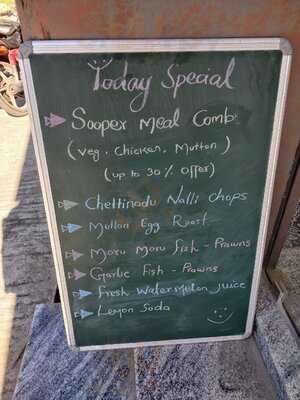 Today Special
Sooper Meal Comb
(Veg, Chicken, Mutton)
(up to 30% offer)
Chettinadu Nalli chops
Mutton Egg Roast
Moru Moru Fish - Prawns
Garlic Fish - Prawns
Fresh Watermelon juice
Lemon Soda